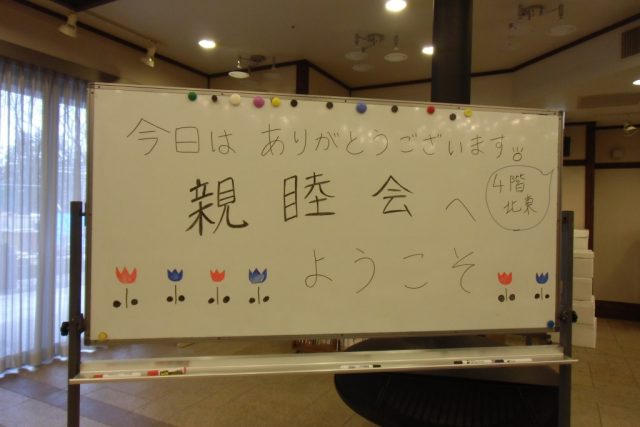 今日は ありがとうございます。
親睦会へ
4階
北東
ようこそ